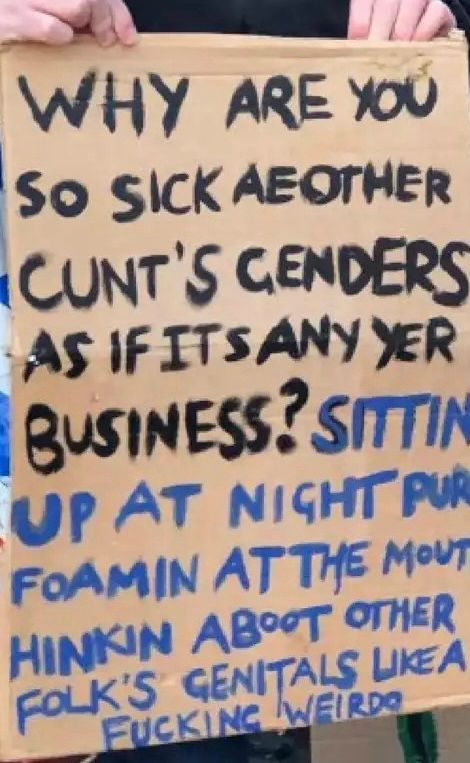 WHY ARE YOU
SO SICK AEOTHER
CUNT'S GENDERS
AS IF ITS ANY YER
BUSINESS? SITTIN
UP AT NIGHT PUR
FOAMIN AT THE MOUT
HINKIN ABOOT OTHER
FOLK'S GENITALS LIKE A
FUCKING WEIRDO